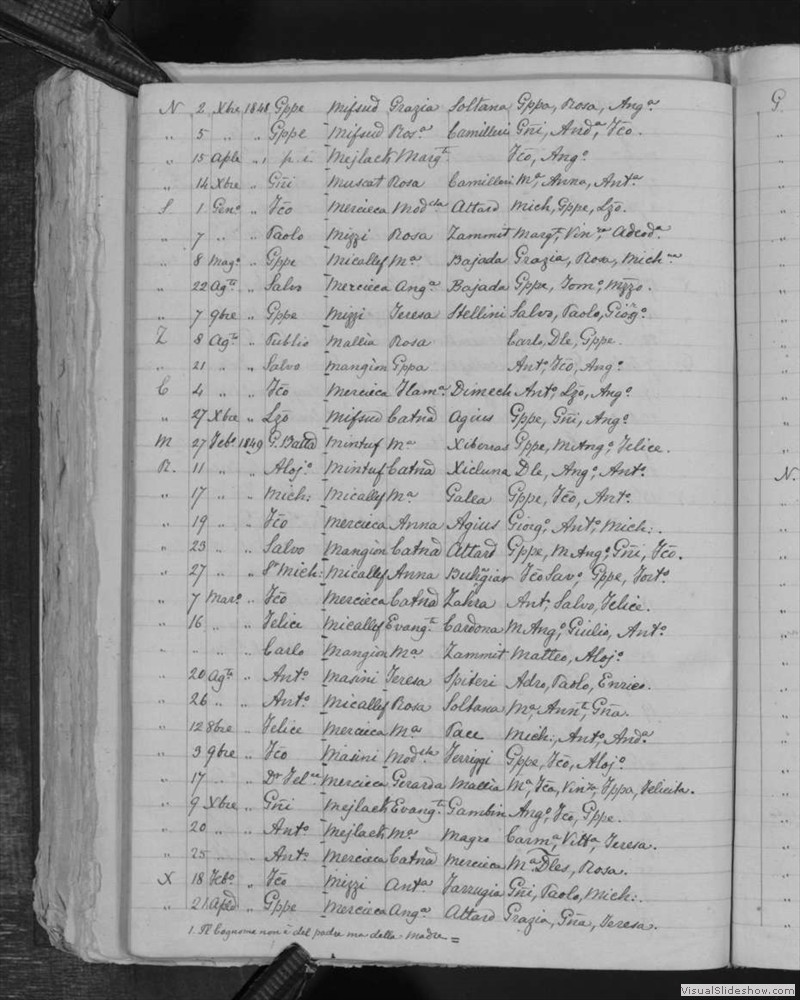 N 2 Xbre 1848 Gppe Mifsud Grazia Soltana Gppa, Rosa, Angª
„ 5 „ „ Gppe Mifsud Rosª Camilleri Gñi, Andª, Fcõ.
„ 15 Aple „ 1 p. i. Mejlack Margt. Fcõ, Angº
„ 14 Xbre „ Gñi Muscat Rosa Camilleri Mª, Anna, Antª
S 1 Genº „ Fcõ Mercieca Modsta Attard Mich, Gppe, Lzo.
„ 7 „ „ Paolo Mizzi Rosa Zammit Margt,
„ 8 Magº „ Gppe Micallef Mª Bajada Grazia, Rosa,
„ 22 Agto „ Salvo Mercieca Angª Bajada Gppe, Tomº,
„ 7 9bre „ Gppe Mizzi Teresa Stellini Salvo, Paolo, Giorgº
Z 8 Agto „ Publio Mallia Rosa Carlo, Dle, Gppe.
„ 21 „ „ Salvo Mangion Gppa Antº, Fcõ, Angº
C 4 „ „ Fcõ Mercieca Dimech Antº, Lzõ, Angº
„ 27 Xbre „ Lzõ Mifsud Catnã Agius Gppe, Gñi, Angº
M 27 Febº 1849 G. Batta Mintuf Mª Xiberras Gppe, M. Angº, Felice.
R. 11 „ „ Alojº Mintuf Catnã Xicluna Dle, Angº, Antº
„ 17 „ „ Mich: Micallef Mª Galea Gppe, Fcõ, Antº
„ 19 „ „ Fcõ Mercieca Anna Agius Giorgº, Antº, Mich:.
„ 23 „ „ Salvo Mangion Catnã Attard Gppe, M. Angº, Gñi, Fcõ.
„ 27 „ „ Mich: Micallef Anna Buhagiar Fcõ Savº, Gppe,
„ 7 Marº „ Fcõ Mercieca Catnã Zahra Ant, Salvo, Felice.
„ 16 „ „ Felice Micallef Evangta Cardona M. Angº, Giulio, Antº
„ „ „ Carlo Mangion Mª Zammit Matteo, Alojº
„ 20 Agto „ Antº Masini Teresa Spiteri Adro, Paolo, Enrico.
„ 26 „ „ Antº Micallef Rosa Soltana Mª, Annt, Gña.
„ 12 8bre „ Felice Mercieca Mª Pace Mich:, Antº, Andª
„ 3 9bre „ Fcõ Masini Modsta Ferriggi Gppe, Fcõ, Alojº
„ 17 „ „ Dr Felce Mercieca Gerarda Mallia Mª, Fca, Felicita.
„ 9 Xbre „ Gñi Mejlack Evangta Gambin Angº, Fcõ, Gppe.
„ 20 „ „ Antº Mejlack Mª Magro Carmª, Vittª, Teresa.
„ 25 „ „ Antº Mercieca Catnã Mercieca Mª Dles, Rosa.
X 18 Febº „ Fcõ Mizzi Anta Farrugia Gñi, Paolo, Mich:.
„ 21 Aple „ Gppe Mercieca Angª Attard Grazia, Gña, Teresa.
1. Il Cognome non è del padre ma della Madre =
G.
N.
VisualSlideshow.com